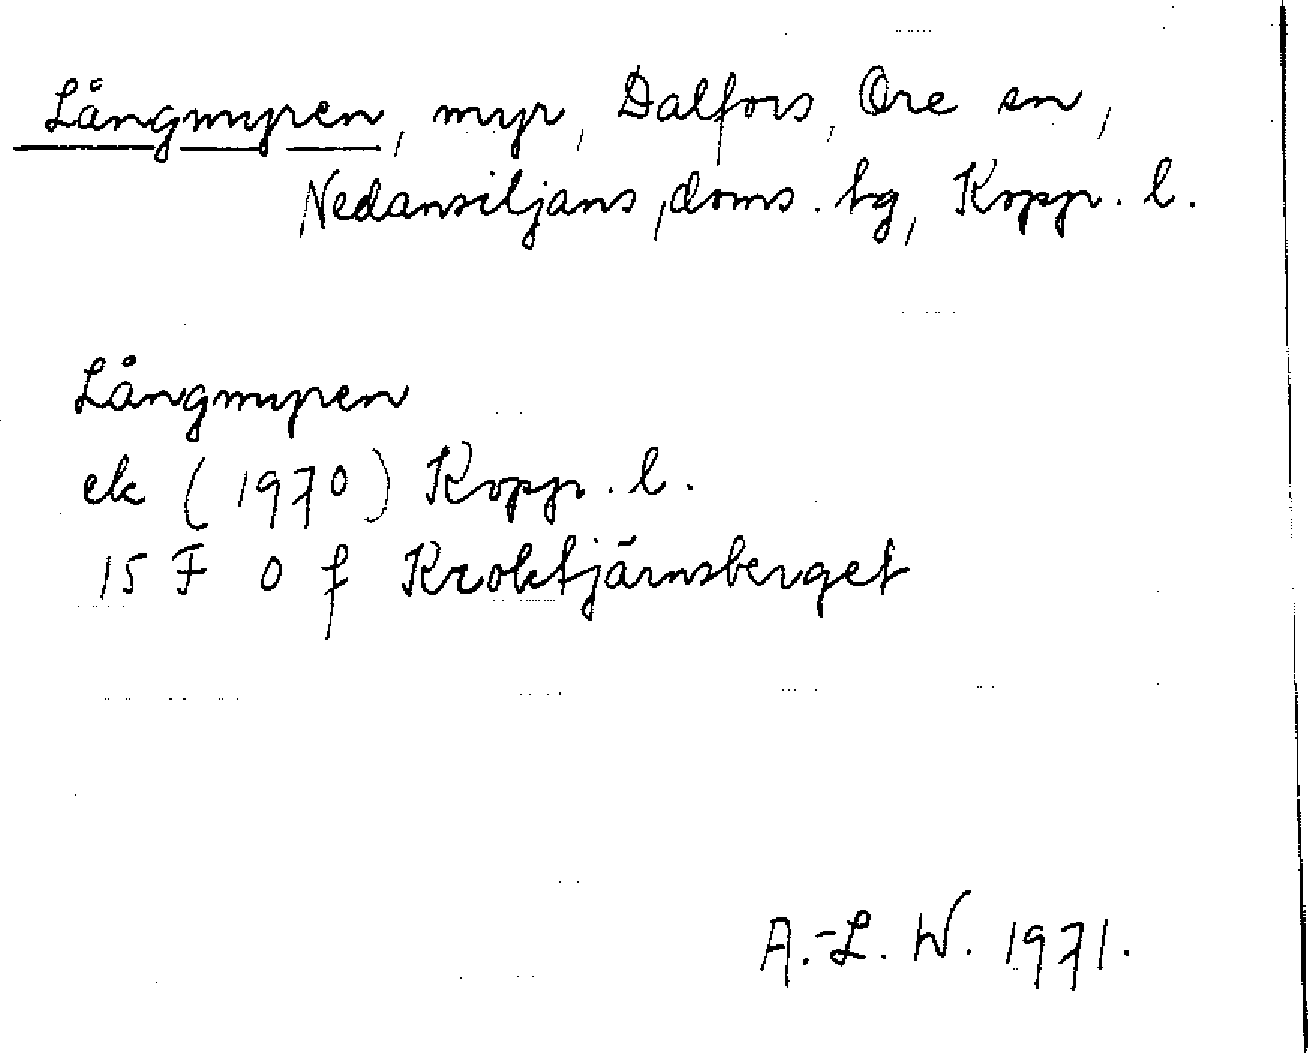 Långmyren, myr, Dalfors, Ore sn,
Nedansiljans, doms. hg, Kopp. l.
Långmyren
ek (1970) Kopp. l.
15 F 0 f Kroktjärnsberget
A.-L. W. 1971.